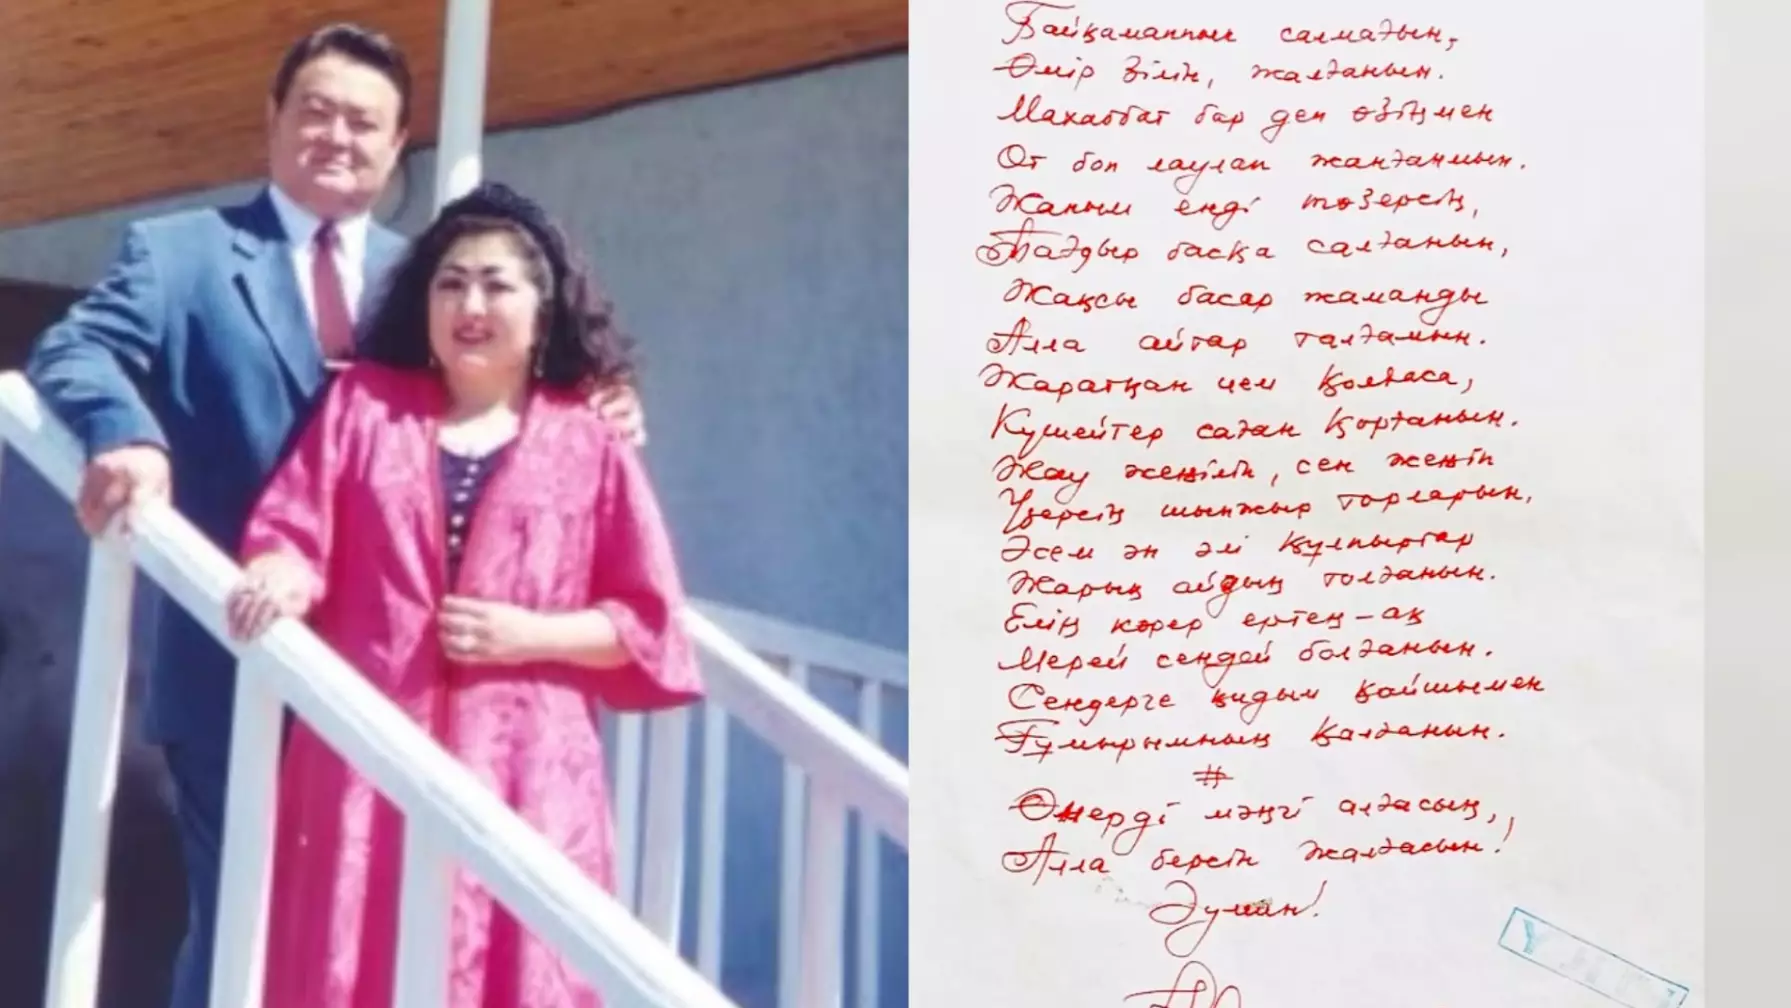 Байқаманпын салмағын,
Өмір зілін, жалғанын.
Махаббат бар деп өзіңмен
От боп лаулап жанғанмын.
Жаным енді төзерсің,
Тағдыр басқа салғанын,
Жақсы басар жаманды
Алла айтар талғамын.
Жаратқан ием қолдаса,
Күшейтер саған қорғанын.
Жау жеңіліп, сен жеңіп
Үзерсің шынжыр торларын,
Әсем ән әлі құлпыртар
Жарық айдың толғанын.
Елің көрер ертең-ақ
Мерей сендей болғанын.
Сендерге қидым қайшымен
Ғұмырымның қалғанын.
#
Өнерді мәңгі алдасың,
Алла берсін жалғасын!
Әумин!